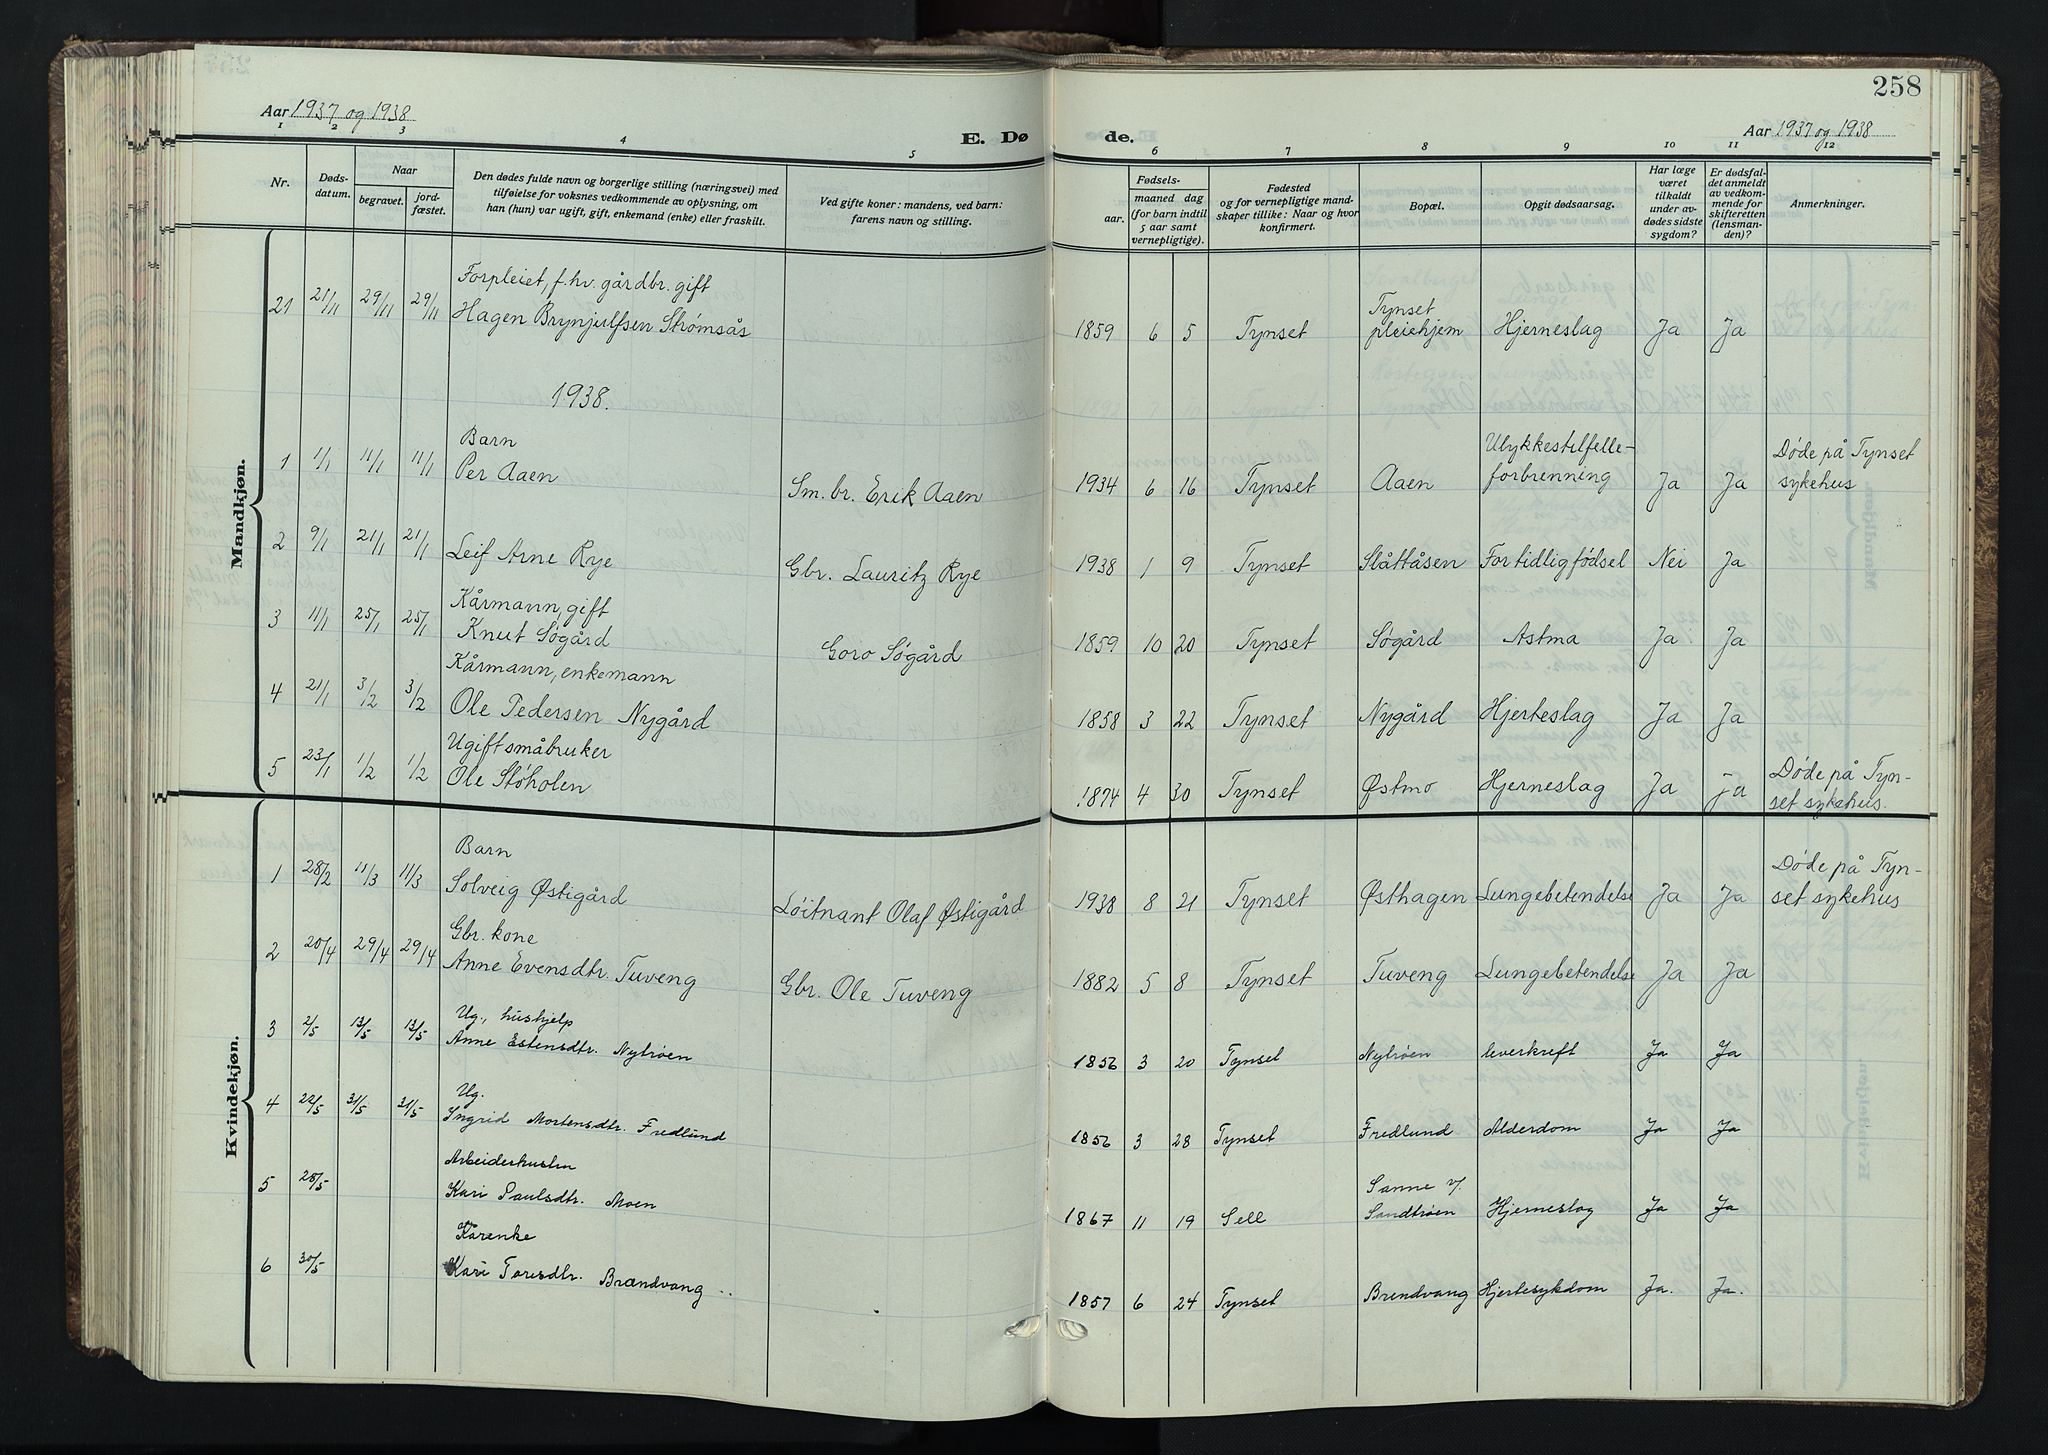 258
Aar 1937 og 1938
E. Døde.
Aar 1937 og 1938
1 2 3 4 5 6 7 8 9 10 11 12
Nr.
Dødsdatum.
Naar
begravet.
jordfæstet.
Den dødes fulde navn og borgerlige stilling (næringsvei) med
tilføielse for voksnes vedkommende av oplysning, om
han (hun) var ugift, gift, enkemand (enke) eller fraskilt.
Ved gifte koner: mandens, ved barn:
farens navn og stilling.
Fødsels-
aar.
maaned dag
(for barn indtil
5 aar samt
vernepligtige).
Fødested
og for vernepligtige mandskaper tillike: Naar og hvor
konfirmert.
Bopæl.
Opgit dødsaarsag.
Har læge
været
tilkaldt
under avdødes sidste
sygdom?
Er dødsfaldet anmeldt
av vedkommende for
skifteretten
(lensmanden)?
Anmerkninger.
Mandkjøn.
Forpleiet, f.hv. gårdbr. gift
21 21/11 29/11 29/11 Hagen Brynjulfsen Strømsås 1859 6 5 Tynset Tynset pleiehjem Hjerneslag Ja Ja
1938.
Barn
1 1/1 11/1 11/1 Per Aaen Sm. br. Erik Aaen 1934 6 16 Tynset Aaen Ulykkestilfelle-forbrenning Ja Ja Døde på Tynset sykehus
2 9/1 21/1 21/1 Leif Arne Rye Gbr. Lauritz Rye 1938 1 9 Tynset Slåttåsen For tidlig fødsel Nei Ja
Kårmann, gift
3 11/1 25/1 25/1 Knut Søgård Goro Søgård 1859 10 20 Tynset Søgård Astma Ja Ja
Kårmann, enkemann
4 21/1 3/2 3/2 Ole Pedersen Nygård 1858 3 22 Tynset Nygård Hjerteslag Ja Ja
Ugift småbruker
5 23/1 1/2 1/2 Ole Støholen 1874 4 30 Tynset Østmo Hjerneslag Ja ja Døde på Tynset sykehus.
Kvindekjøn.
Barn
1 28/2 11/3 11/3 Solveig Østigård Løitnant Olaf Østigård 1938 8 21 Tynset Østhagen Lungebetendelse Ja Ja Døde på Tynset sykehus
Gbr. kone
2 20/4 29/4 29/4 Anne Evensdtr. Tuveng Gbr. Ole Tuveng 1882 5 8 Tynset Tuveng Lungebetendelse Ja Ja
Ug., hushjelp
3 2/5 13/5 13/5 Anne Estensdtr. Nytrøen 1856 3 20 Tynset Nytrøen leverkreft Ja Ja
Ug.
4 22/5 31/5 31/5 Ingrid Mortensdtr. Fredlund 1856 3 28 Tynset Fredlund Alderdom Ja Ja
Arbeiderhustru
5 28/5 Kari Paulsdtr. Moen 1867 11 19 Sell Sanne v/. Sandtrøen Hjerneslag Ja Ja
Kårenke
6 30/5 Kari Toresdtr. Brandvang .. 1857 6 24 Tynset Brendvang Hjertesykdom Ja. Ja.